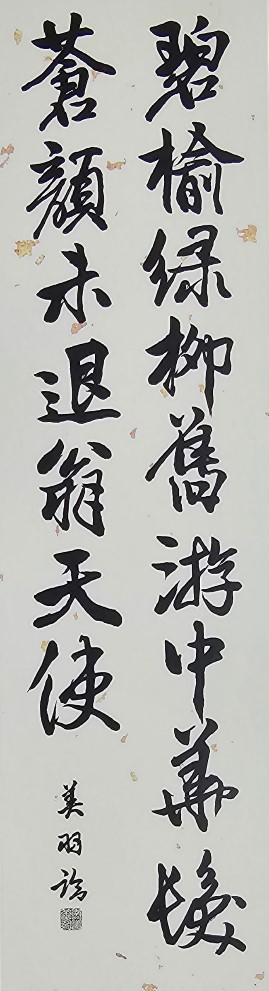 碧榆綠柳舊游中華髮
蒼顏未退翁天使
美羽